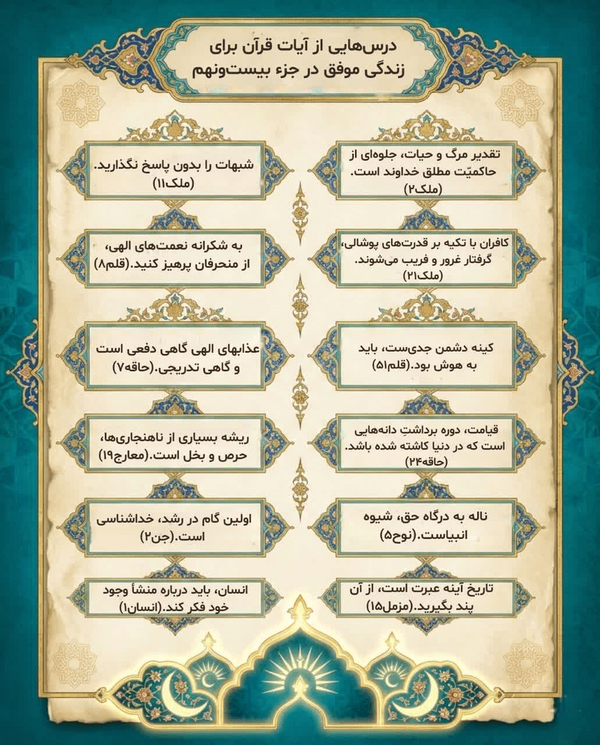 درس‌هایی از آیات قرآن برای
زندگی موفق در جزء بیست‌ونهم
تقدیر مرگ و حیات، جلوه‌ای از
حاکمیّت مطلق خداوند است.
(ملک۲)
شبهات را بدون پاسخ نگذارید.
(ملک۱۱)
کافران با تکیه بر قدرت‌های پوشالی،
گرفتار غرور و فریب می‌شوند.
(ملک۲۱)
به شکرانه نعمت‌های الهی،
از منحرفان پرهیز کنید.(قلم۸)
کینه دشمن جدی‌ست، باید
به هوش بود.(قلم۵۱)
عذابهای الهی گاهی دفعی است
و گاهی تدریجی.(حاقه۷)
قیامت، دوره برداشتِ دانه‌هایی
است که در دنیا کاشته شده باشد.
(حاقه۲۴)
ریشه بسیاری از ناهنجاری‌ها،
حرص و بخل است.(معارج۱۹)
ناله به درگاه حق، شیوه
انبیاست.(نوح۵)
اولین گام در رشد، خداشناسی
است.(جن۲)
تاریخ آینه عبرت است، از آن
پند بگیرید.(مزمل۱۵)
انسان، باید درباره منشأ وجود
خود فکر کند.(انسان۱)